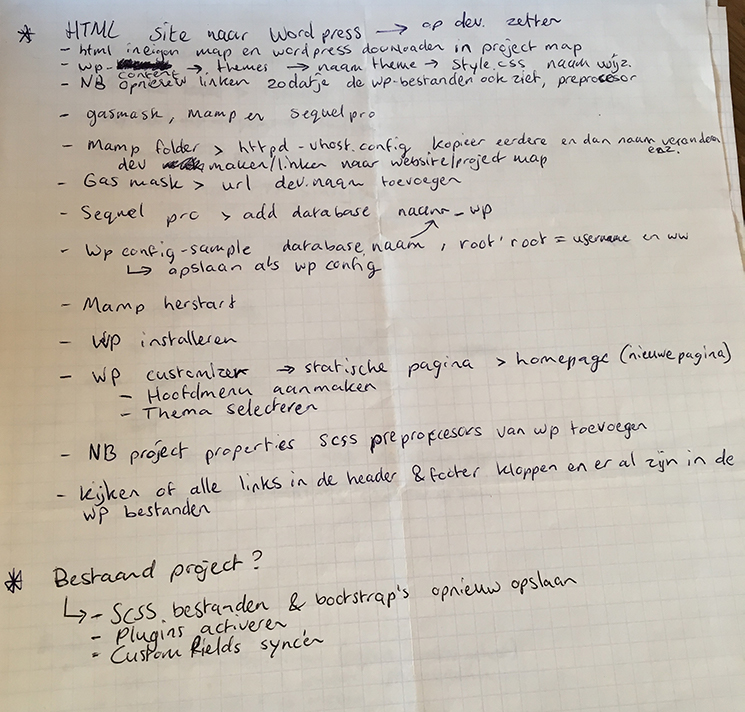 * HTML site naar Wordpress → op dev. zetten
- html in eigen map en wordpress downloaden in project map
- wp-content → themes → naam theme → style.css naam wijz.
- NB opnieuw linken zodatje de wp-bestanden ook ziet, preprocesor
- gasmask, Mamp en sequel pro
- Mamp folder > httpd-vhost.config kopieer eerdere en dan naam veranderen enz.
dev maken/linken naar website/project map
- Gas mask > url dev.naam toevoegen
- Sequel pro > add database naam_wp
- Wp config-sample database naam, root' root = username en ww
↳ opslaan als wp config
- Mamp herstart
- WP installeren
- WP customizer → statische pagina > homepage (nieuwe pagina)
- Hoofdmenu aanmaken
- Thema selecteren
- NB project properties scss preprocesors van wp toevoegen
- kijken of alle links in de header & footer kloppen en er al zijn in de
wp bestanden
* Bestaand project?
↳ - Scss bestanden & bootstrap's opnieuw opslaan
- Plugins activeren
- Custom fields syncen